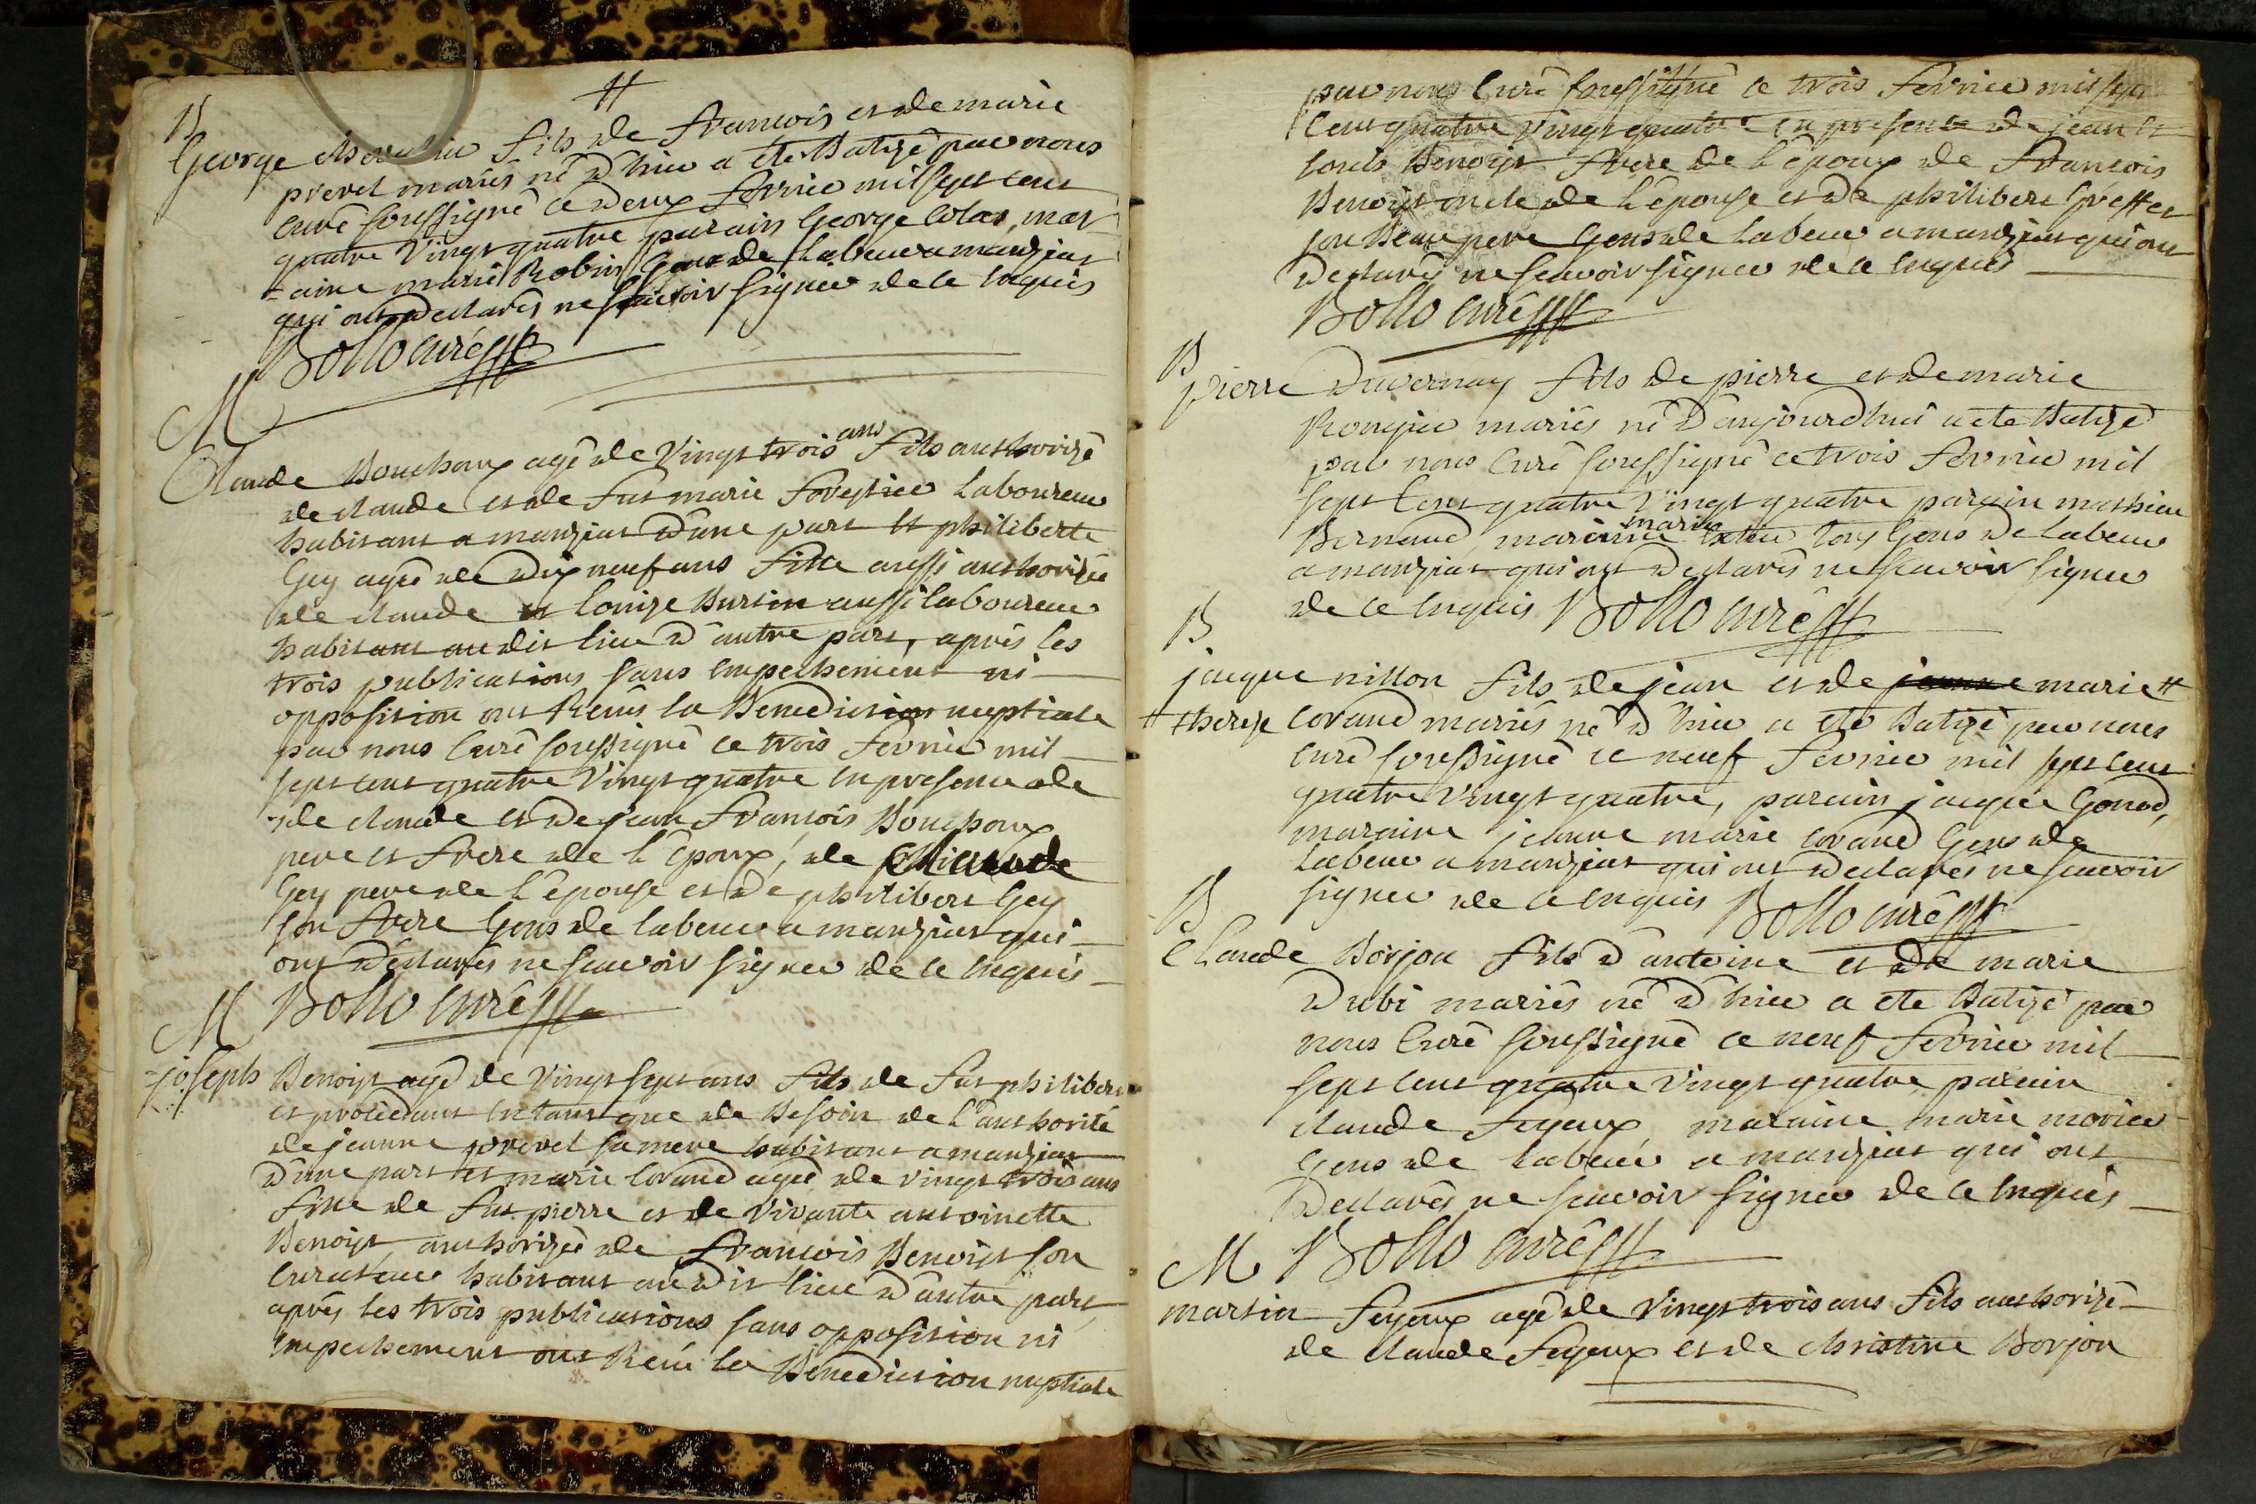 B
George chevalier fils de francois et de marie
prevel mariés né d'hier a ete Batizé par nous
curé soussigné ce deux fevrier mil sept cent
quatre Vingt quatre parain George Colas, mar
=aine marie Robin Gens de Labeur a manziat
qui ont declarés ne scavoir signer de ce enquis
Bollo curé
M
Claude Bouchoux agé de Vingt trois ans fils authorizé
de claude et de fut marie forestier Laboureur
habitant a manziat d'une part et philiberte
Guy ageé de dix neuf ans fille aussi authorizée
de claude et Louize Burtin aussi laboureur
habitant au dit lieu d'autre part, aprés les
trois publications sans empechement ni
opposition ont Recus la Benediction nuptiale
par nous Curé soussigné ce trois fevrier mil
sept cent quatre Vingt quatre en presence de
de claude et de jean francois Bouchoux
pere et frere de l'epoux, de claude
Guy pere de l'épouse et de philibert Guy
son frere Gens de labeur a manziat qui
ont déclarés ne scavoir signer de ce enquis
Bollo curé
M
joseph Benoist agé de Vingt sept ans fils de fut philibert
et procédant en tant que de Besoin de l'authorité
de jeanne prevel sa mere habitant a manziat
d'une part et marie Corand ageé de vingt trois ans
fille de fut pierre et de Vivante antoinette
Benoist, authorizée de francois Benoist son
Curateur habitant au dit lieu d'autre part,
aprés les trois publications sans opposition ni
empechement ont Recu la Benediction nuptiale
par nous Curé soussigné ce trois fevrier mil sept
Cent quatre Vingt quatre en presence de jean et
Louis Benoist frere de l'époux de francois
Benoist oncle de l'épouse et de philibert
son Beau pere Gens de labeur a manziat qui ont
declarés ne scavoir signer de ce enquis
Bollo curé
B
pierre Duvernay fils de pierre et de marie
Rongier mariés né d'aujourdhui a ete Batizé
par nous Curé soussigné ce trois fevrier mil
sept Cent quatre Vingt quatre parain mathieu
marie
Bernard, maraine tous Gens de labeur
a manziat qui ont declarés ne scavoir signer
de ce enquis Bollo curé
B
jacque nillon fils de jean et de jeanne marie #
# therese Corand mariés né d'hier a ete Batizé par nous
curé soussigné ce neuf fevrier mil sept cent
quatre vingt quatre, parain jacque Gonod,
maraine jeanne marie Corand Gens de
Labeur a manziat qui ont declarés ne scavoir
signer de ce enquis Bollo curé
B
claude Borjon fils d'antoine et de marie
Dubi mariés né d'hier a ete Batizé par
nous Curé soussigné ce neuf fevrier mil
sept cent quatre vingt quatre, parain
claude feyeux, maraine marie morier
Gens de labeur a manziat qui ont
declarés ne scavoir signer de ce enquis
Bollo curé
M
martin feyeux agé de vingt trois ans fils authorizé
de claude feyeux et de christine Borjon